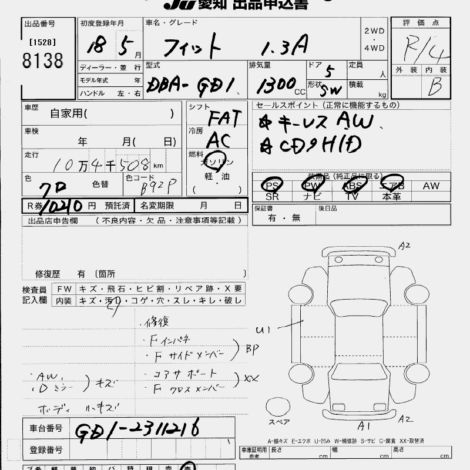 JU 愛知 出品申込書
出品番号
[1528]
8138
初度登録年月
18年5月
車名・グレード
フィット 1.3A
2WD・4WD
評価点
R/4
ディーラー・並行
モデル年式 年
ハンドル 左・右
型式
DBA-GD1
排気量
1300cc
ドア
5
形状
SW
定員
人
積載
kg
外装 内装
B
車歴
自家用( )
シフト
FAT
セールスポイント(正常に機能するもの)
キーレス AW
CD HID
車検
年 月( )日
冷房
AC
走行
10万4千508km
燃料
ガソリン
軽・油
色
色替
色コード
B92P
装備品(純正品に限る)
PS PW ABS エアB AW
SR ナビ TV 本革
R券 10210円 預託済
名変期限 月 日
出品店申告欄 (不良内容・欠品・注意事項等記載)
保証書
有・無
後日品
修復歴 有( )箇所
検査員記入欄
FW キズ・飛石・ヒビ割・リペア跡・X要
内装 キズ・汚れ・コゲ・穴・スレ・キレ・破し
・修復
・Fインパネ
・Fサイドメンバー
BP
・コアサポート
・Fクロスメンバー
XX
・AW
・Dミラー
キズ
ボディ
A2
U1
スペア
A1
A2
車台番号
GD1-2311216
登録番号
A-線キズ E-エクボ U-凹み W-補修跡 S-サビ C-腐食 XX-取替済
長さ cm 幅 cm 高さ cm